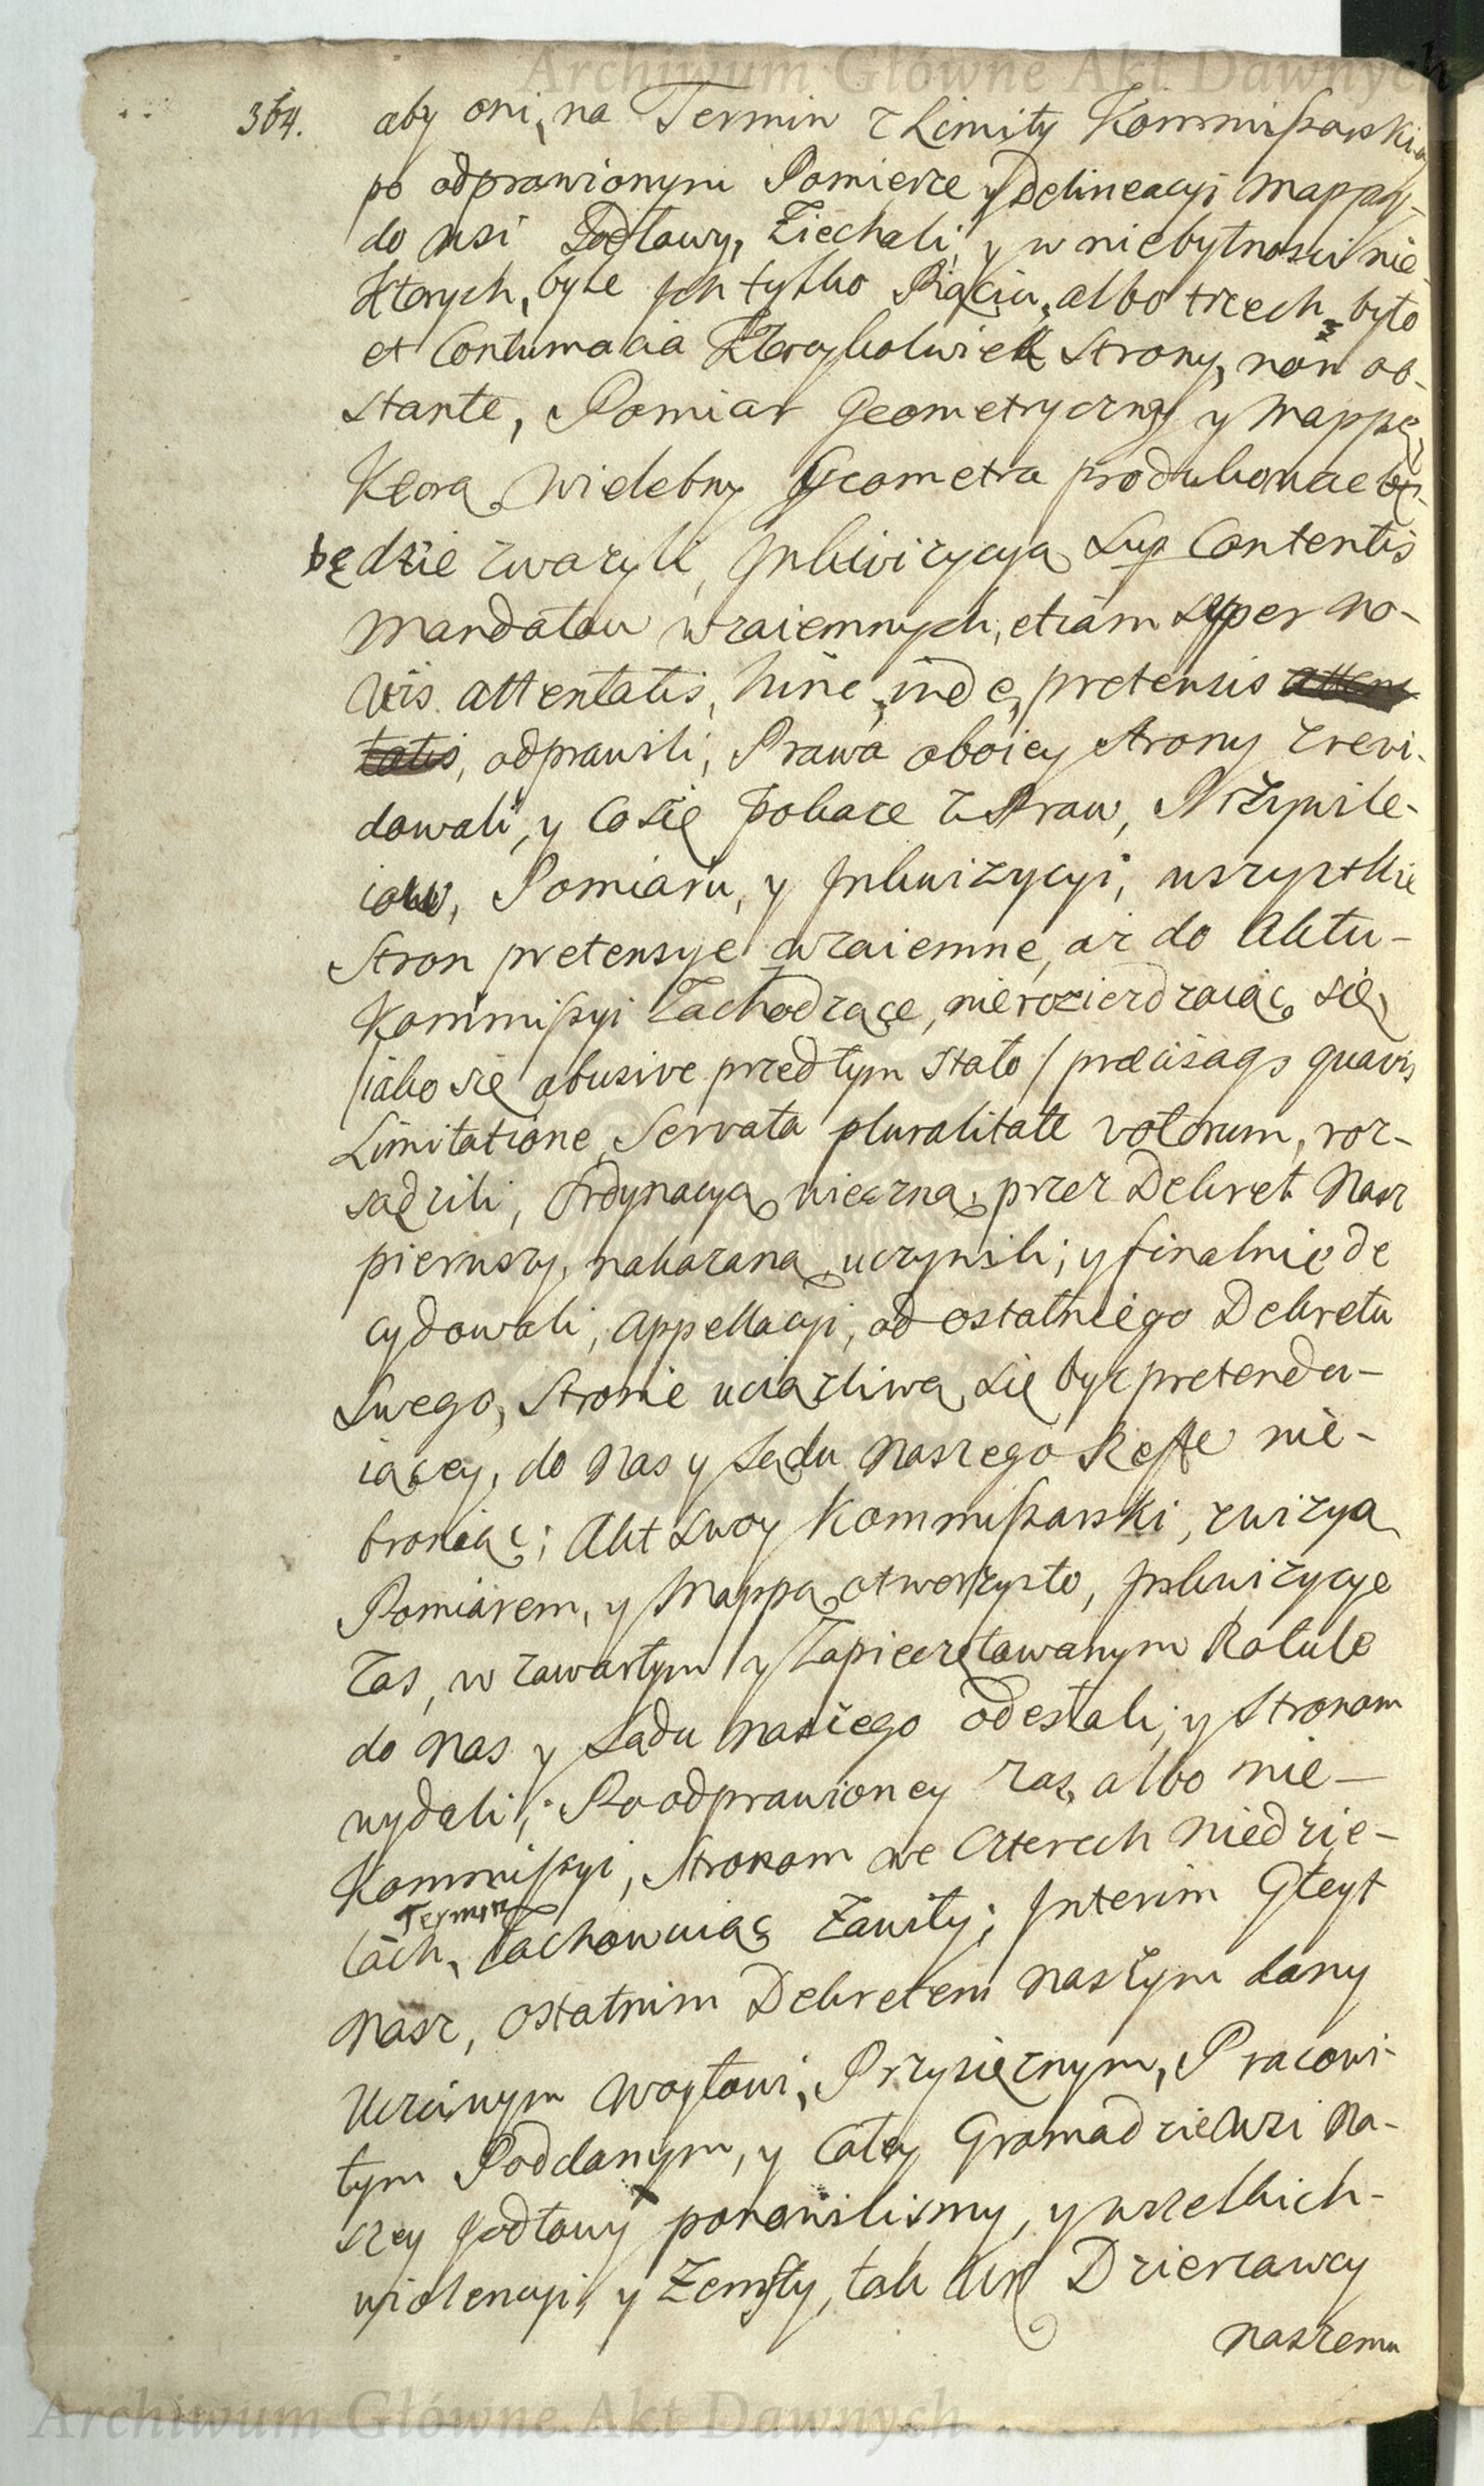 Archiwum Główne Akt Dawnych
364.
aby oni, na Termin z Limity Kommißarskiey
po odprawionym Pomierze y Delineacyi Mappy
do wsi Jodłowy, Ziechali, y w niebytnosci nie-
ktorych, byle ich tylko Pięciu, albo trzech było
et Contumacia Ktoreykolwiek Strony, non ob-
stante, Pomiar Geometryczny y Mappę,
Ktorą Wielebny Geometra produkowac
będzie zwazyli, Inkwizycyą Sup Contentis
Mandatow wzaiemnych, etiam super no-
vis attentatis, hinc, inde, pretensis atten
tatis, odprawili, Prawa oboiey strony zrewi-
dowali, y Co się pokaze z Praw, Przywile-
iow, Pomiaru, y Inkwizycyi, wszystkie
Stron pretensye wzaiemne, az do Aktu
Kommißyi Zachodzące, nierozierdzaiąc się
/iako się abusive przedtym stało/ præcisaqs quavis
Limitatione, Servata pluralitate votorum, roz-
sądzili, Ordynacyą wieczną, przez Dekret Nasz
pierwszy, nakazaną uczynili; y finalnie de
cydowali, Appellacyi, od ostatniego Dekretu
Swego, Stronie uciążliwą się byc pretendu-
iącey, do Nas y Sądu Naszego Reffe nie-
broniąc; Akt Swoy Kommißarski, z wizyą
Pomiarem, y Mappą otworzysto, Inkwizycye
zas, w zawartym y Zapieczętowanym Rotule
do Nas y Sądu Naszego odesłali; y Stronom
wydali; Po odprawioney zas, albo nie
Kommißyi, Stronom we Czterech Niedzie-
Termin
lach, Zachowuiąc Zawity; Interim Gleyt
Nasz, ostatnim Dekretem Naszym dany
Uczciwym Woytowi, Przysięznym, Pracowi-
tym Poddanym, y Całey Gromadzie Wsi Na-
szey Jodłowy ponowilismy, y wszelkich
wiolencyi, y Zemsty, tak Ur Dzierzawcy
naszemu
Archiwum Główne Akt Dawnych